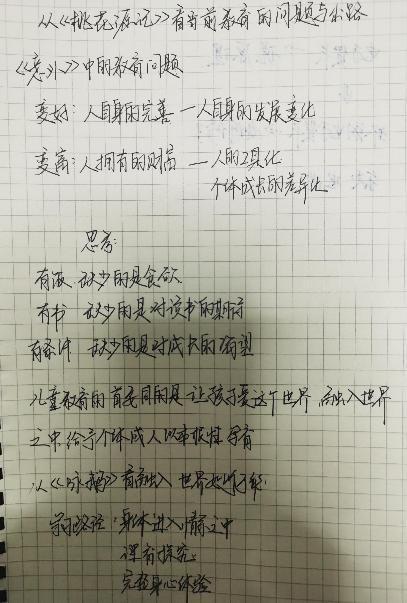 从《桃花源记》看当前教育的问题与出路
《意外》中的教育问题
变好：人自身的完善—人自身的发展变化
变富：人拥有的财富—人的工具化
个体成长的差异化
思考：
有饭 缺少的是食欲
有书 缺少的是对读书的期待
有条件 缺少的是对成长的渴望
儿童教育的首要目的是让孩子爱这个世界，融入世界
之中，给予个体成人以本根性孕育
从《咏鹅》看融入世界如何可能
学习路径：身体进入情境之中
课有探究
完整身心体验